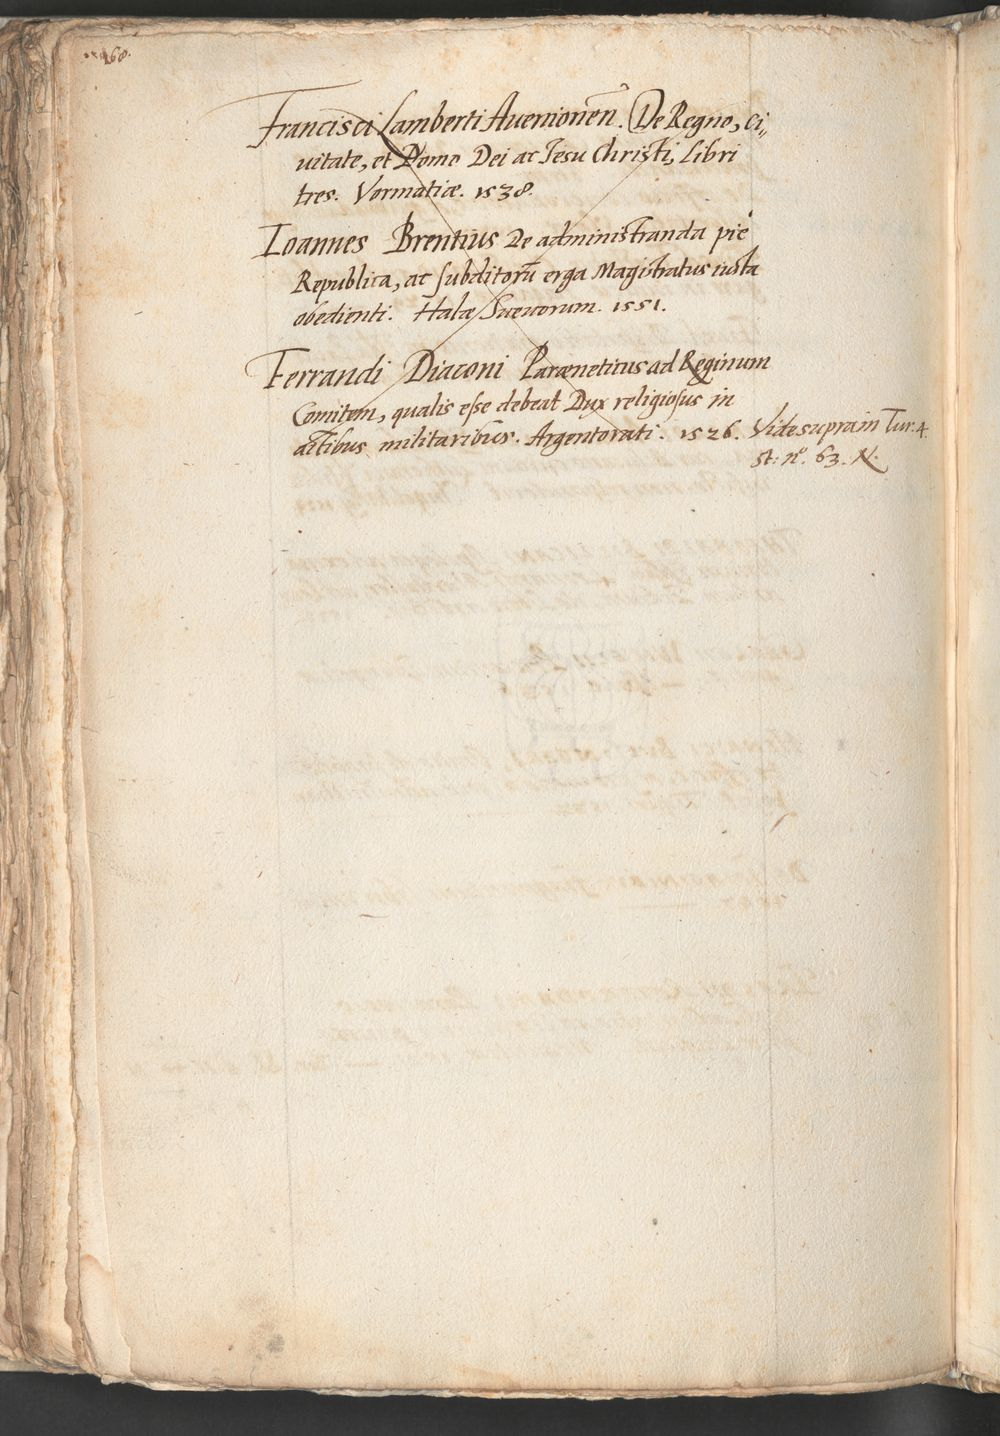 168.
Francisci Lamberti Auenionen̄. De Regno, Ci„
uitate, et Domo Dei ac Iesu Christi, Libri
tres. Vormatiæ. 1538.
Ioannes Brentius De administranda piè
Republica, ac subditorū erga Magistratus iusta
obedienti. Halæ Sueuorum. 1551.
Ferrandi Diaconi Paræneticus ad Reginum
Comitem, qualis esse debeat Dux religiosus in
actibus militaribus. Argentorati. 1526. Vide supra in Tur. 4.
st: nº. 63. N.